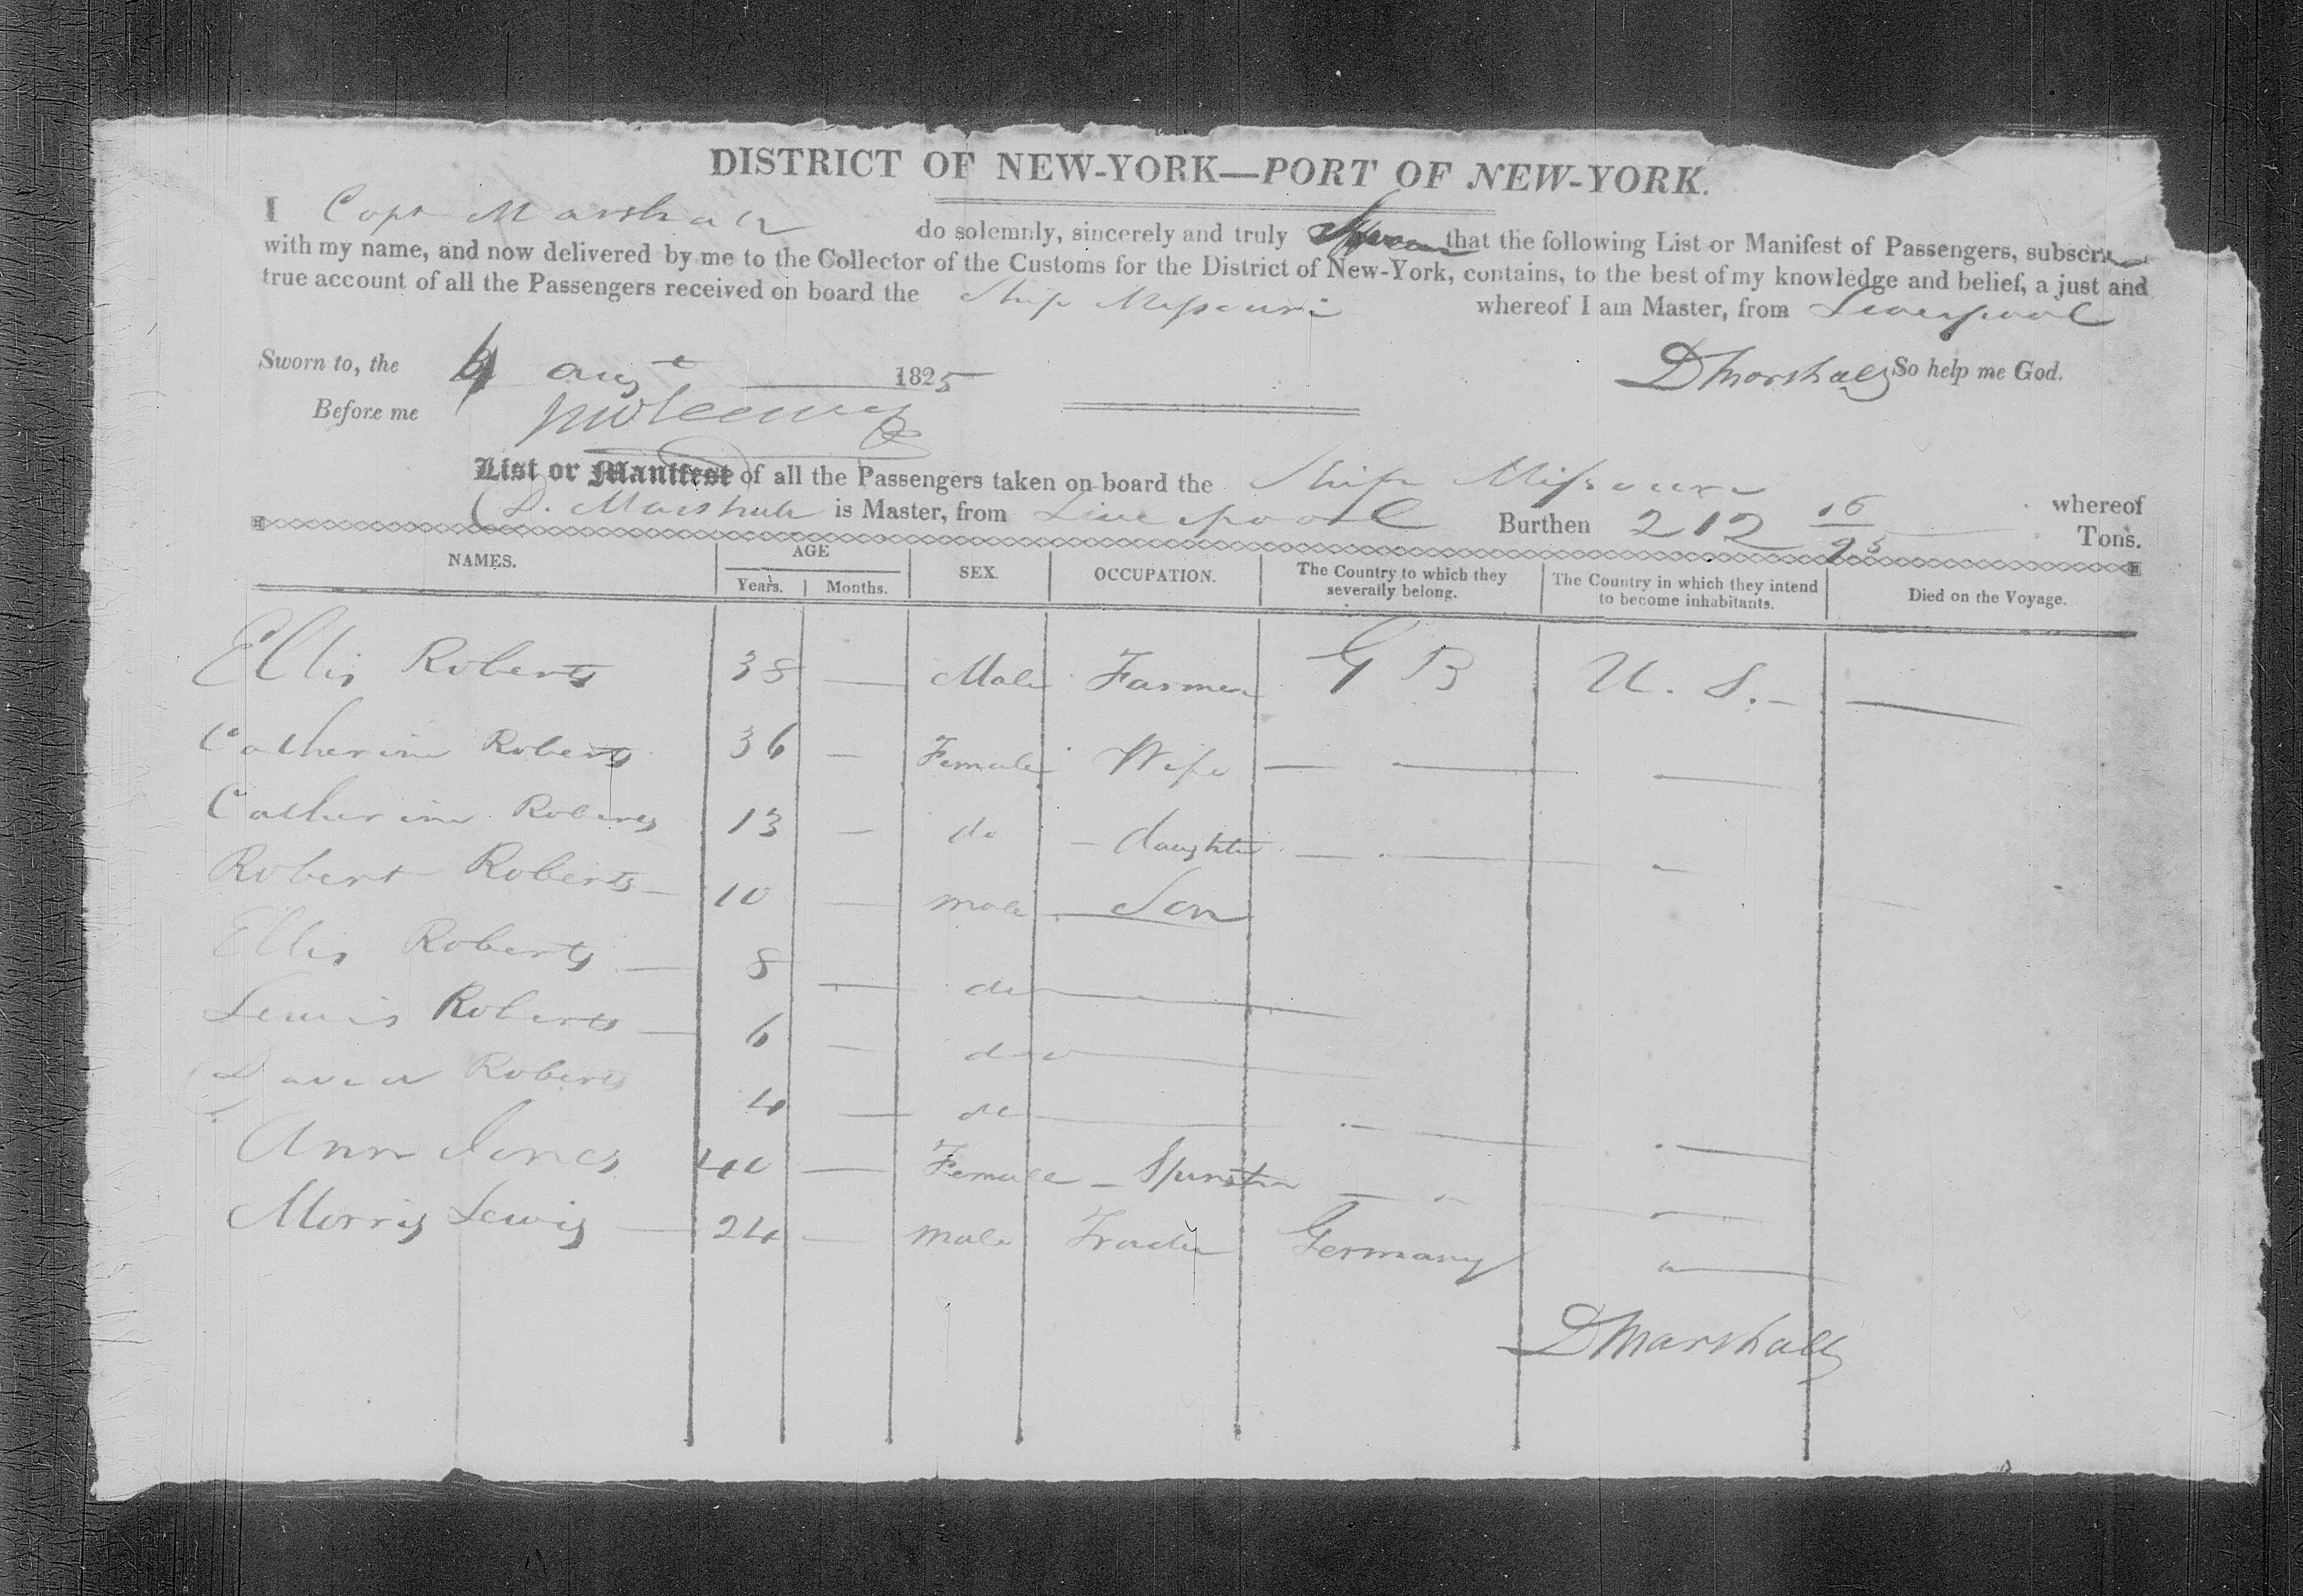 DISTRICT OF NEW-YORK—PORT OF NEW-YORK.
I Capt Marshall do solemnly, sincerely and truly that the following List or Manifest of Passengers, subscri
with my name, and now delivered by me to the Collector of the Customs for the District of New-York, contains, to the best of my knowledge and belief, a just and
true account of all the Passengers received on board the Ship Missouri whereof I am Master, from Liverpool
Sworn to, the augt 1825 D Marshall So help me God.
Before me
List or Manifest of all the Passengers taken on board the Ship Missouri whereof
D. Marshall is Master, from Liverpool Burthen 212 16/95 Tons.
NAMES. AGE Years. Months. SEX. OCCUPATION. The Country to which they severally belong. The Country in which they intend to become inhabitants. Died on the Voyage.
Ellis Roberts 38 — Male Farmer G B U. S. — —
Catherine Roberts 36 — Female Wife — — —
Catherine Roberts 13 — do — daughter — — —
Robert Roberts — 10 — male — Son
Ellis Roberts — 8 — do —
Lewis Roberts — 6 — do —
David Roberts 4 — do — — —
Ann Jones 40 — Female — Spinster — " "
Morris Lewis — 24 — male Trader Germany " —
D Marshall